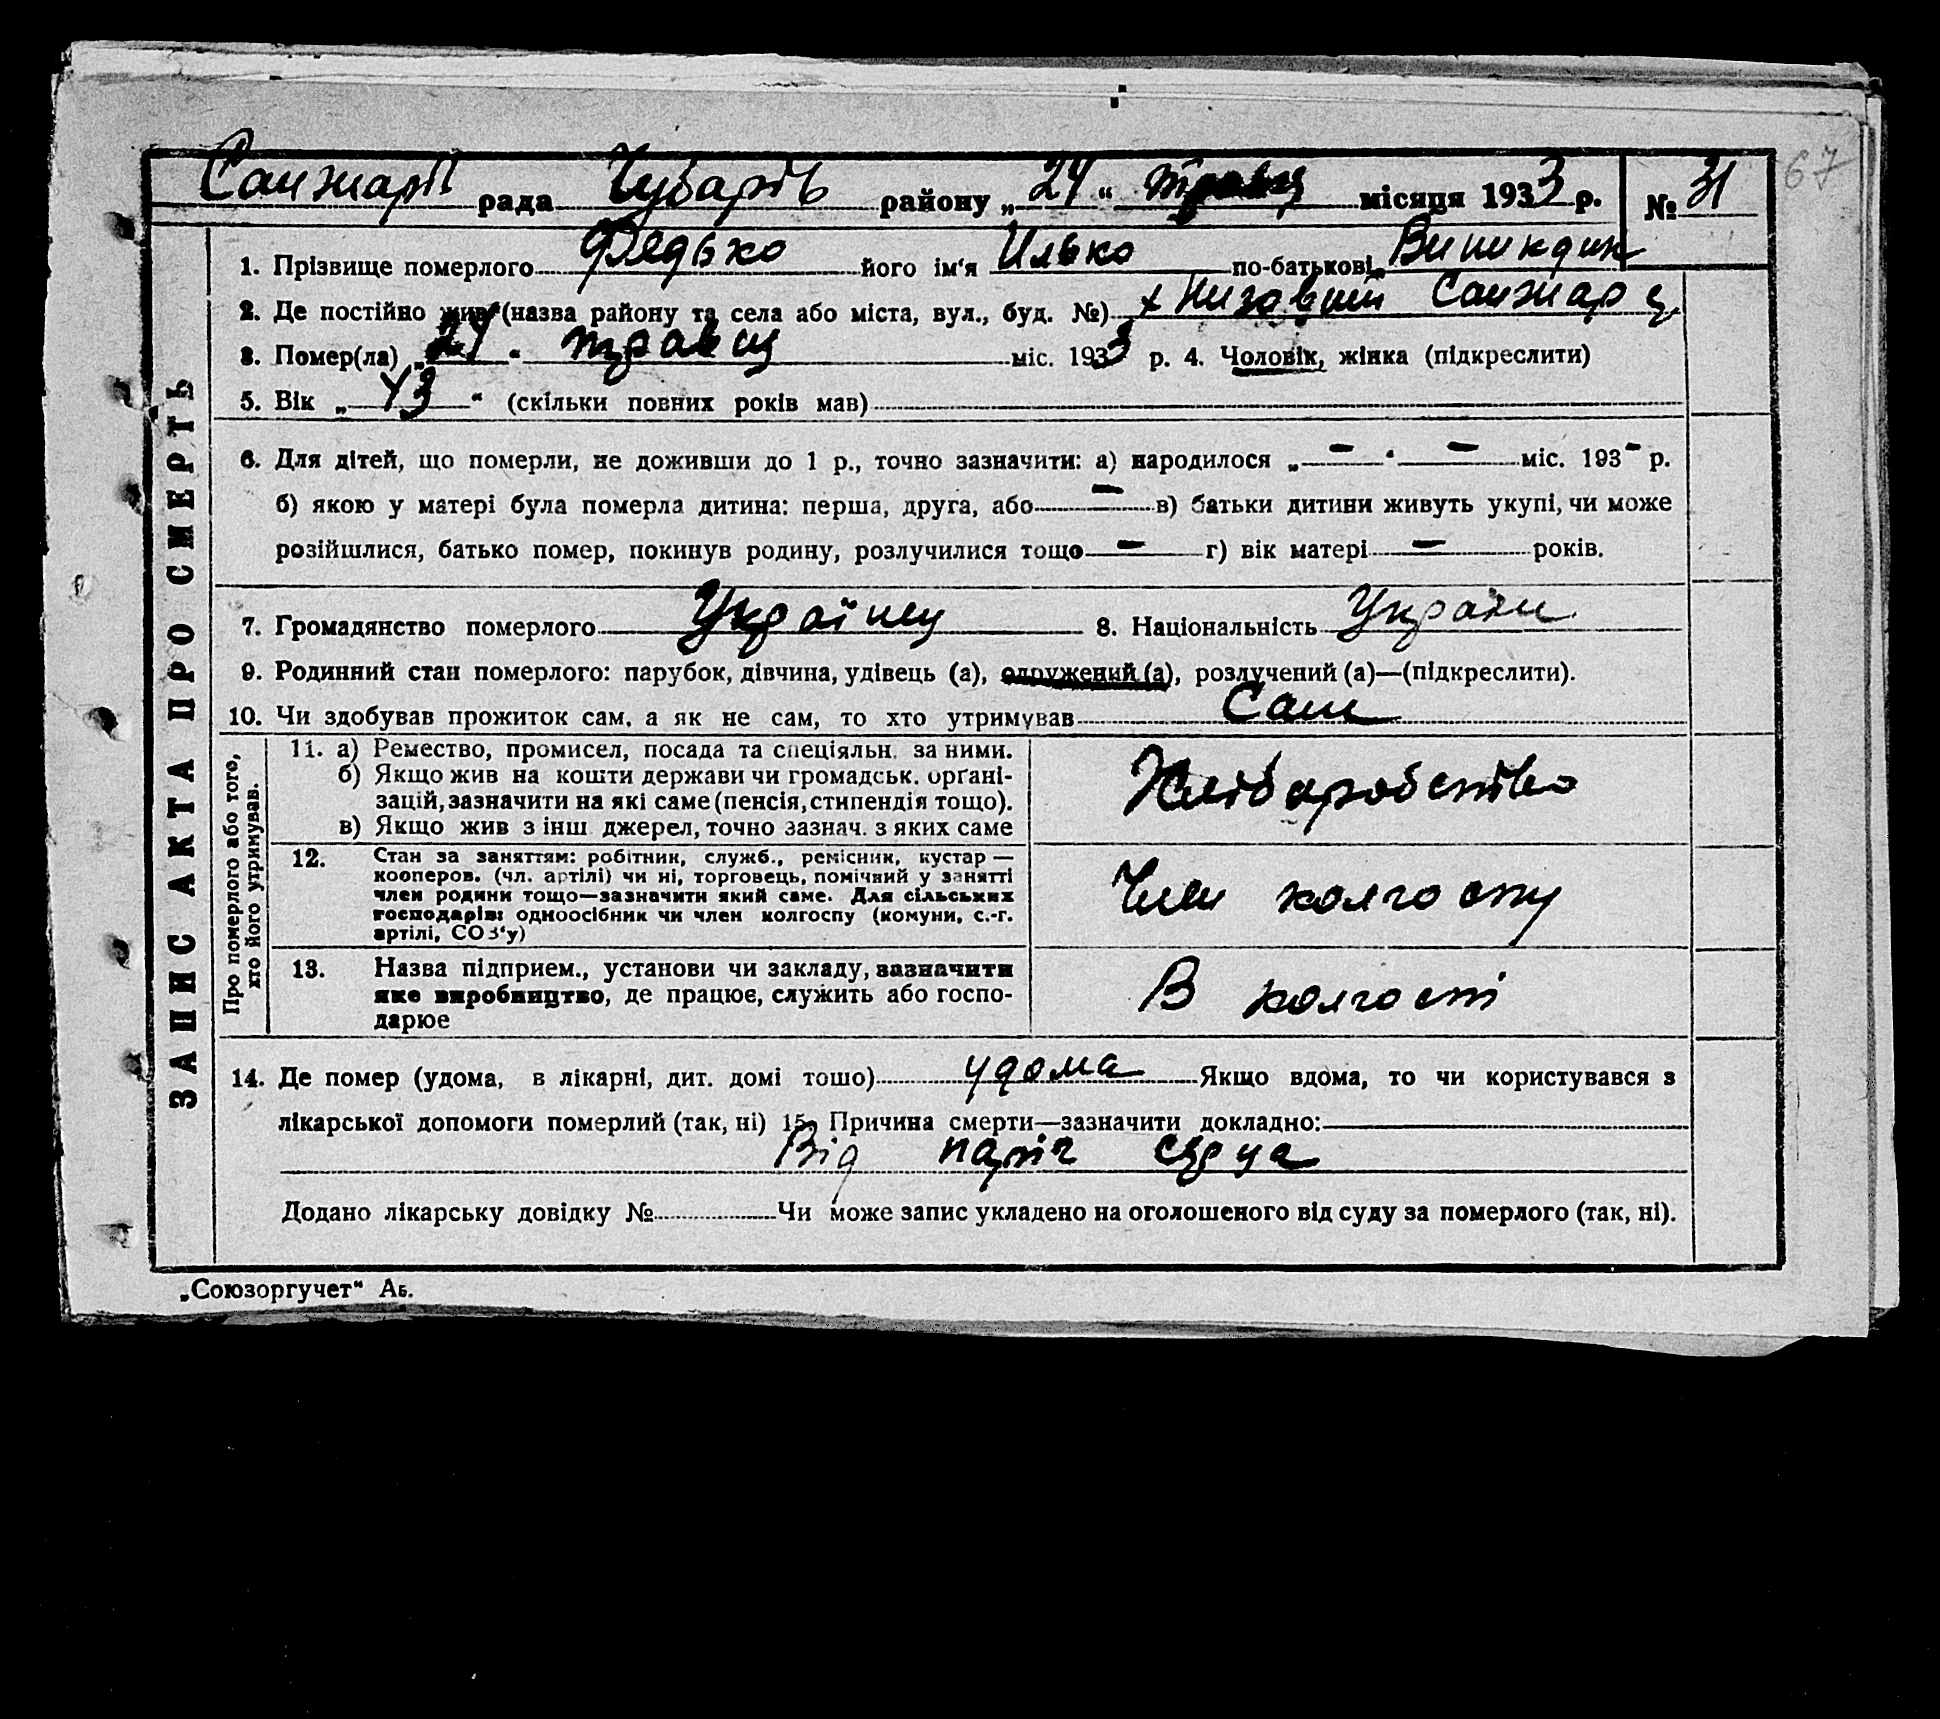 67
Санжарі рада Чубарів району „24“ травц місяця 1933 р. № 31
ЗАПИС АКТА ПРО СМЕРТЬ
1. Прізвище померлого Федько його ім'я Илько по-батькові
2. Де постійно жив (назва району та села або міста, вул., буд. №) х Низовий Санжар
3. Помер(ла) „24“ травц міс. 1933 р. 4. Чоловік, жінка (підкреслити)
5. Вік „43“ (скільки повних років мав)
6. Для дітей, що померли, не доживши до 1 р., точно зазначити: а) народилося „—“ — міс. 193- р.
б) якою у матері була померла дитина: перша, друга, або — в) батьки дитини живуть укупі, чи може
розійшлися, батько помер, покинув родину, розлучилися тощо — г) вік матері — років.
7. Громадянство померлого 8. Національність Україн
9. Родинний стан померлого: парубок, дівчина, удівець (а), одружений (а), розлучений (а)—(підкреслити).
10. Чи здобував прожиток сам, а як не сам, то хто утримував Сам
Про померлого або того,
хто його утримував.
11. а) Ремество, промисел, посада та спеціяльн. за ними.
б) Якщо жив на кошти держави чи громадськ. орґані-
зацій, зазначити на які саме (пенсія, стипендія тощо).
в) Якщо жив з інш. джерел, точно зазнач. з яких саме
Хліборобство
12. Стан за заняттям: робітник, служб., ремісник, кустар —
кооперов. (чл. артілі) чи ні, торговець, помічний у занятті
член родини тощо—зазначити який саме. Для сільських
господарів: одноосібник чи член колгоспу (комуни, с.-г.
артілі, СОЗ'у)
Член колгоспу
13. Назва підприєм., установи чи закладу, зазначити
яке виробництво, де працює, служить або госпо-
дарює
В колгоспі
14. Де помер (удома, в лікарні, дит. домі тощо) удома Якщо вдома, то чи користувався з
лікарської допомоги померлий (так, ні) 15. Причина смерти—зазначити докладно:
Від серца
Додано лікарську довідку № Чи може запис укладено на оголошеного від суду за померлого (так, ні).
„Союзоргучет“ Аб.